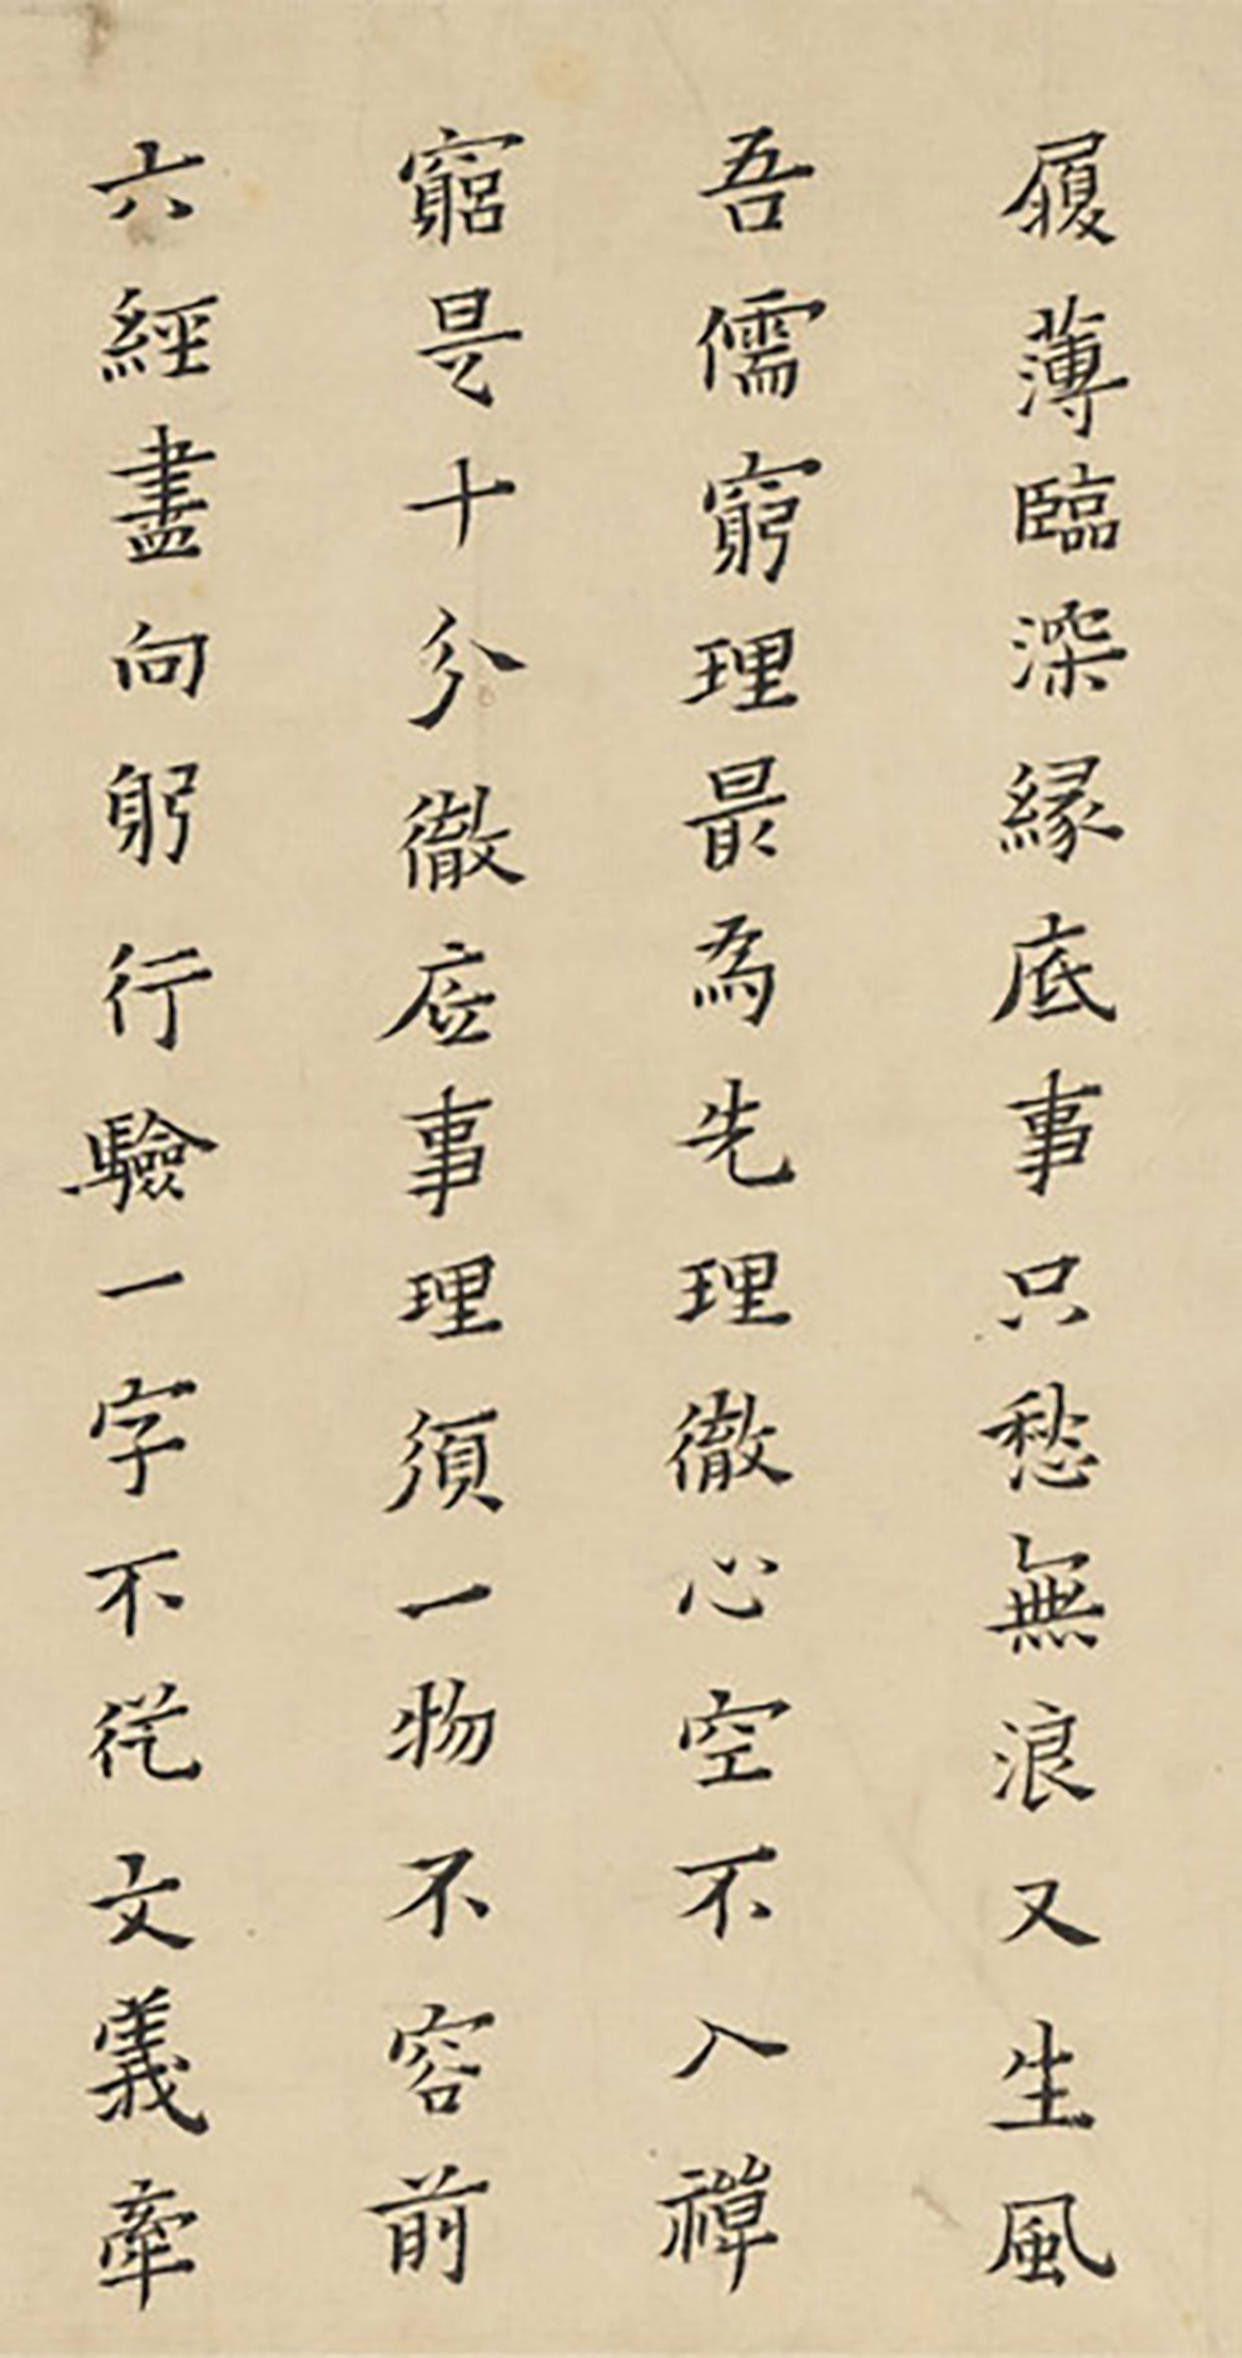 履薄臨深緣底事只愁無浪又生風
吾儒窮理最為先理徹心空不入禪
窮是十分徹底事理須一物不容前
六經盡向躬行驗一字不從文義牽